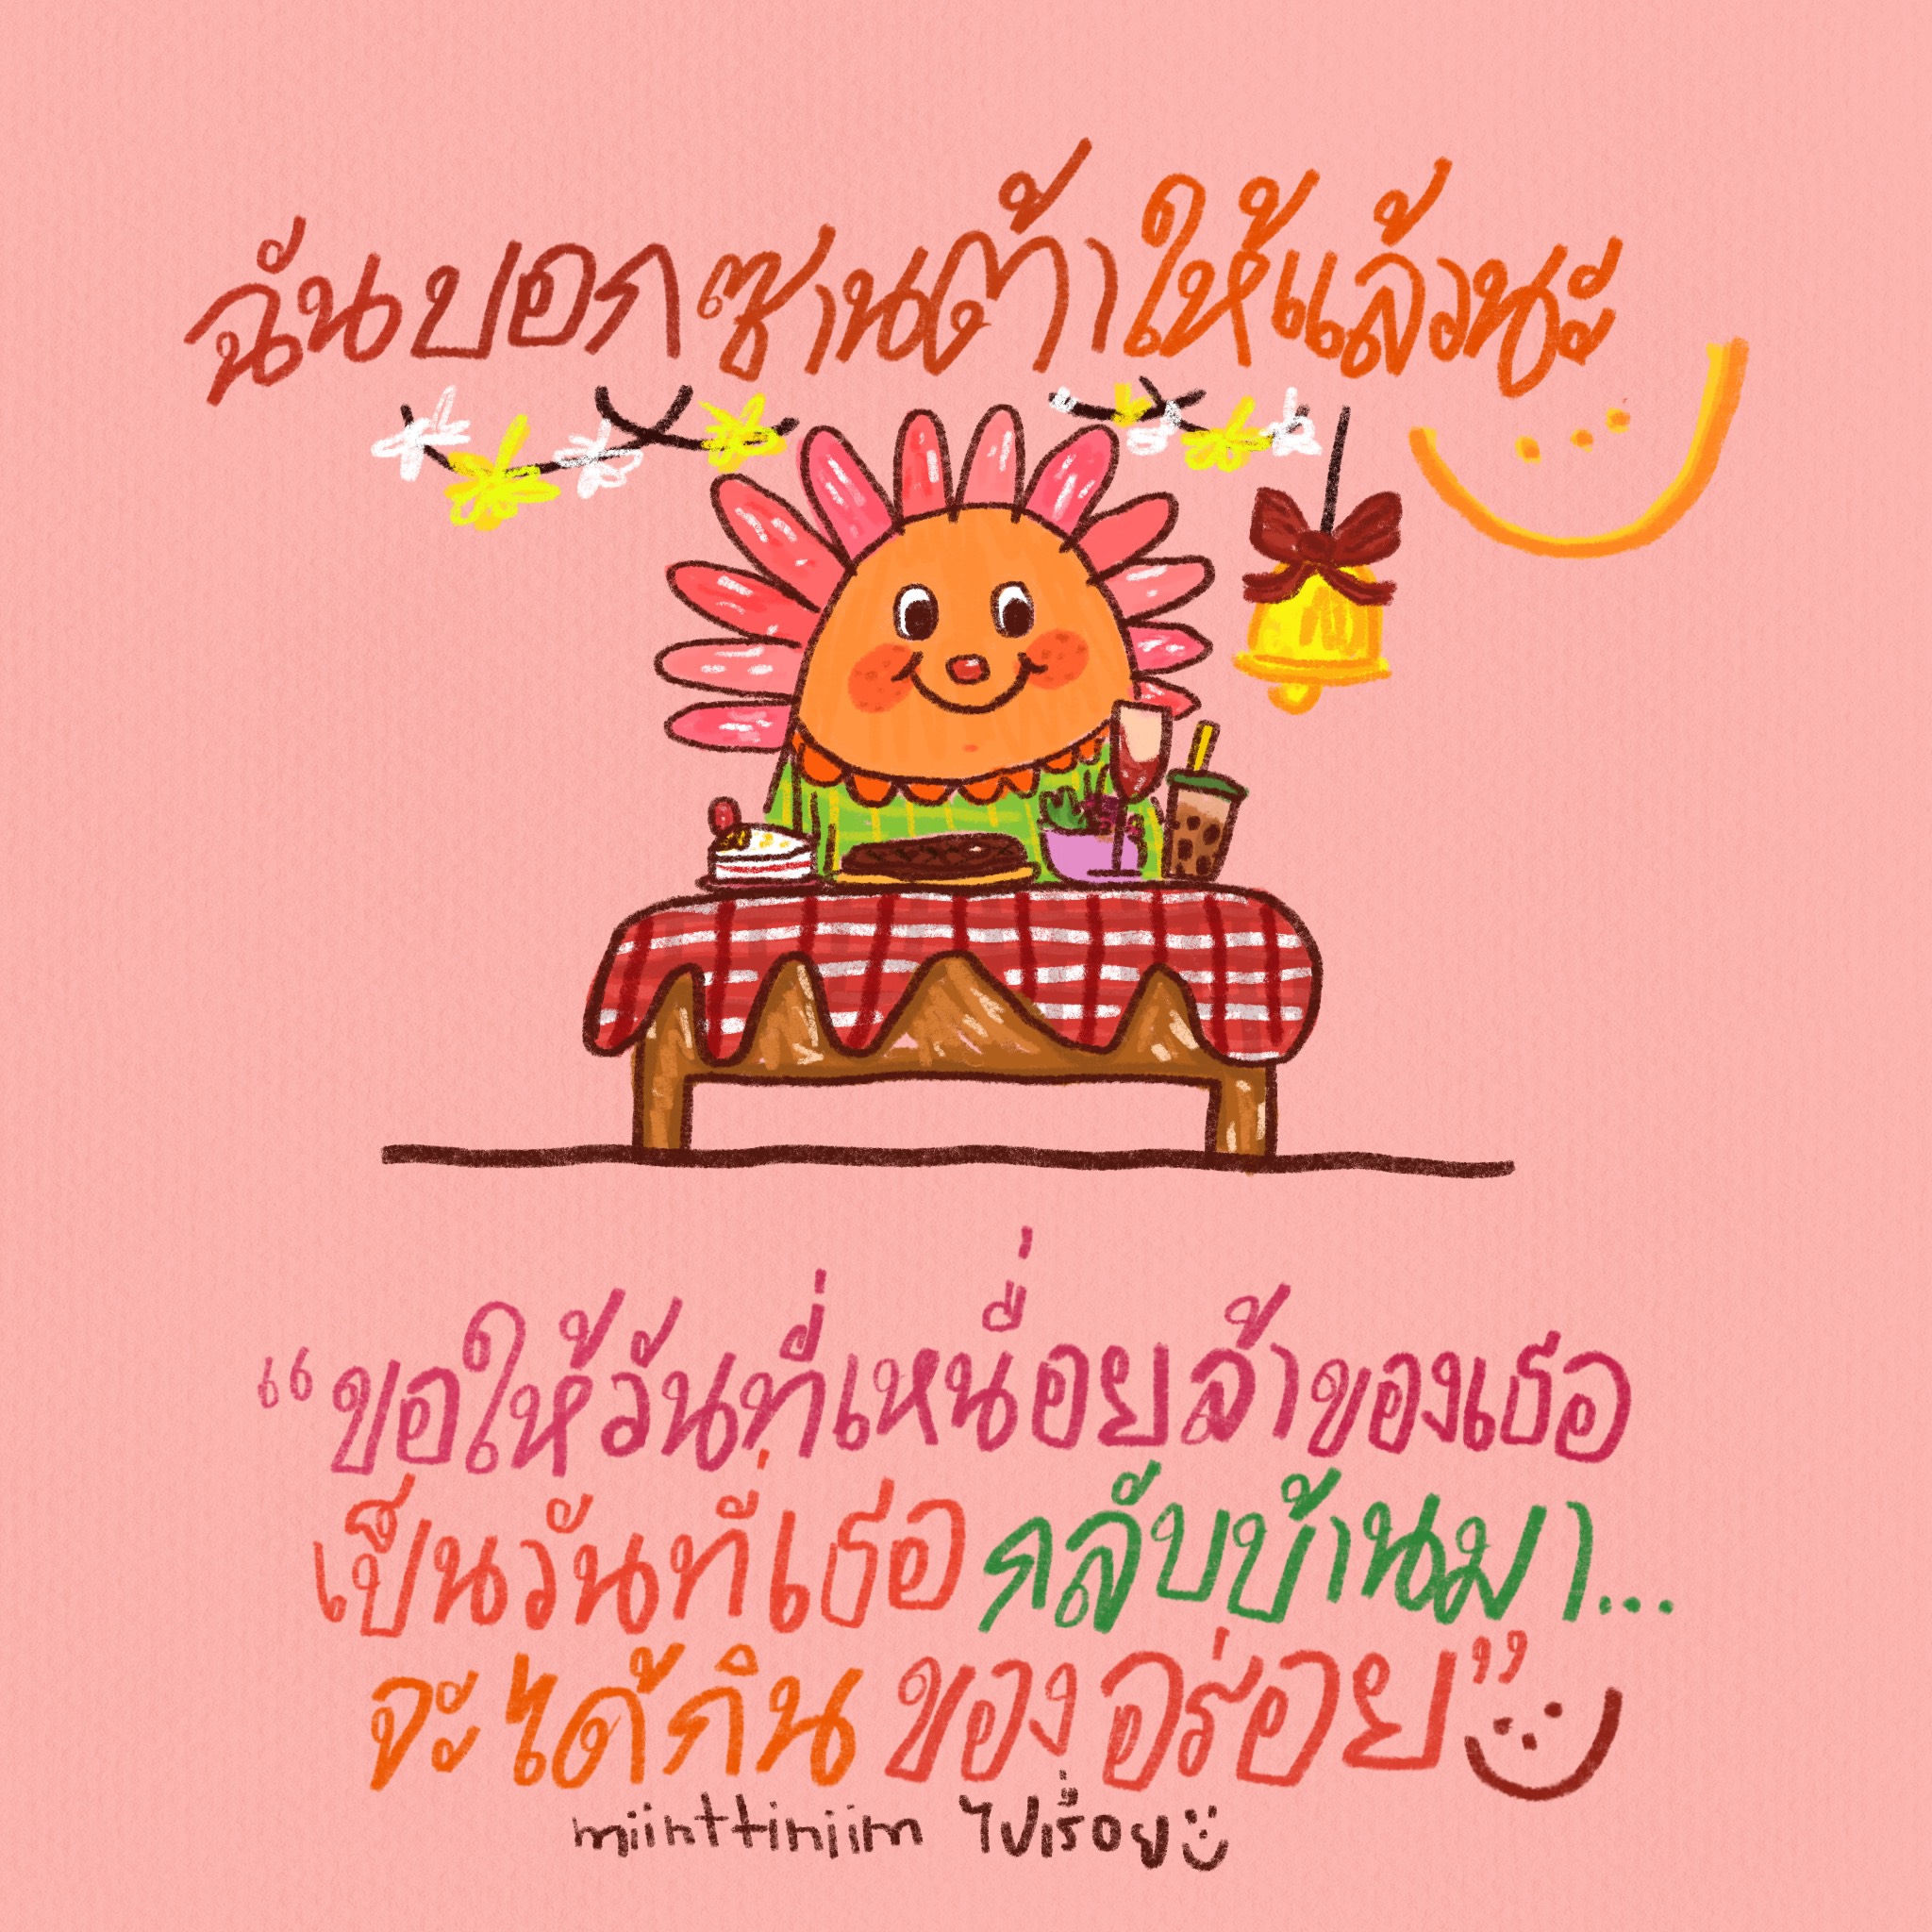 ฉันบอกซานต้าให้แล้วนะ
“ขอให้วันที่เหนื่อยล้าของเธอ
เป็นวันที่เธอกลับบ้านมา...
จะได้กินของอร่อย”
miinttiniim ไปเรื่อย